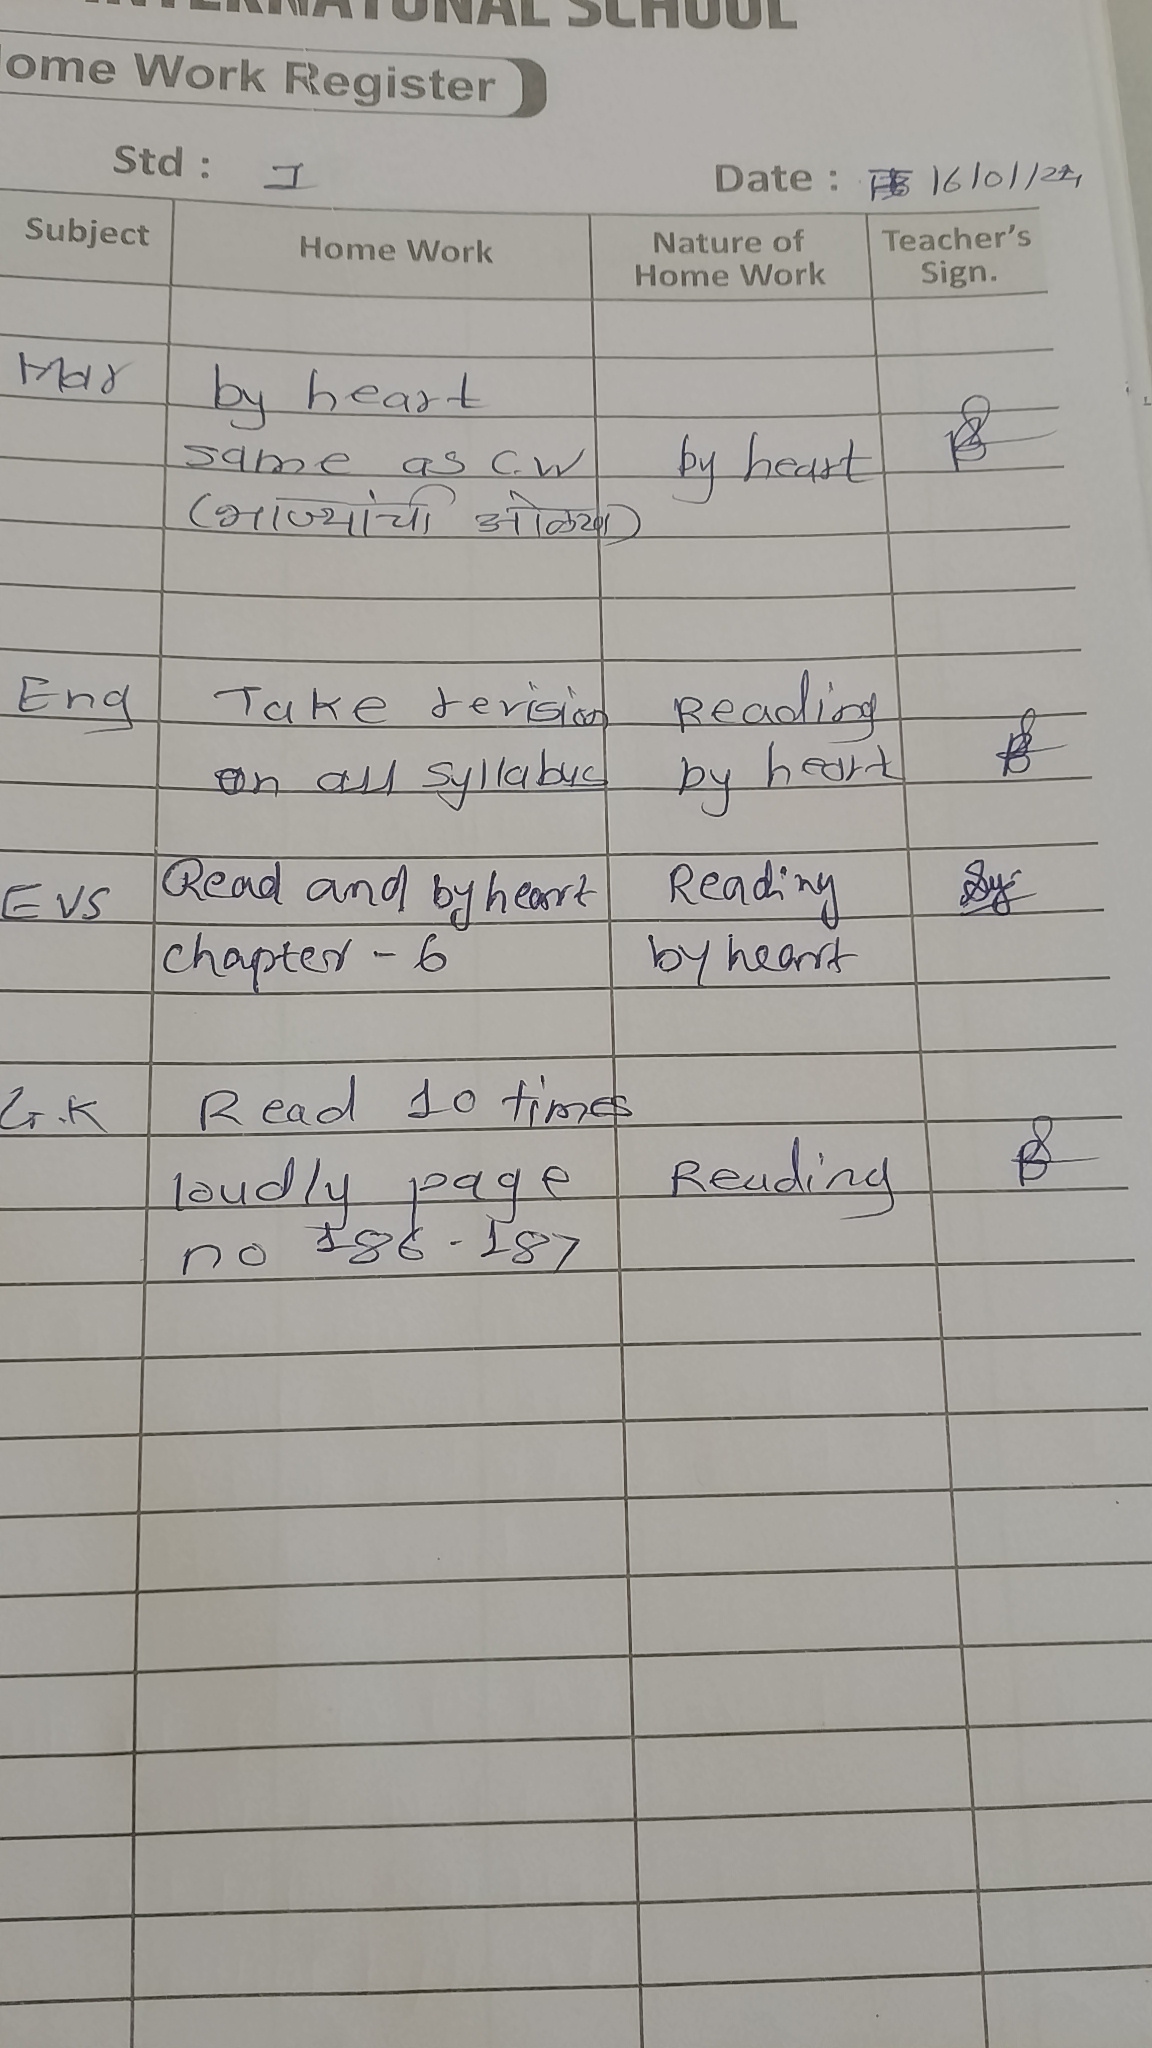 INTERNATONAL SCHOOL
ome Work Register
Std : I Date : 16/01/24
Subject Home Work Nature of Home Work Teacher's Sign.
Mar by heart
same as C.W by heart
(भाज्यांची ओळख)
Eng Take revision Reading
on all syllabus by heart
EVS Read and by heart Reading
chapter - 6 by heart
G.K Read 10 times
loudly page Reading
no 186 - 187